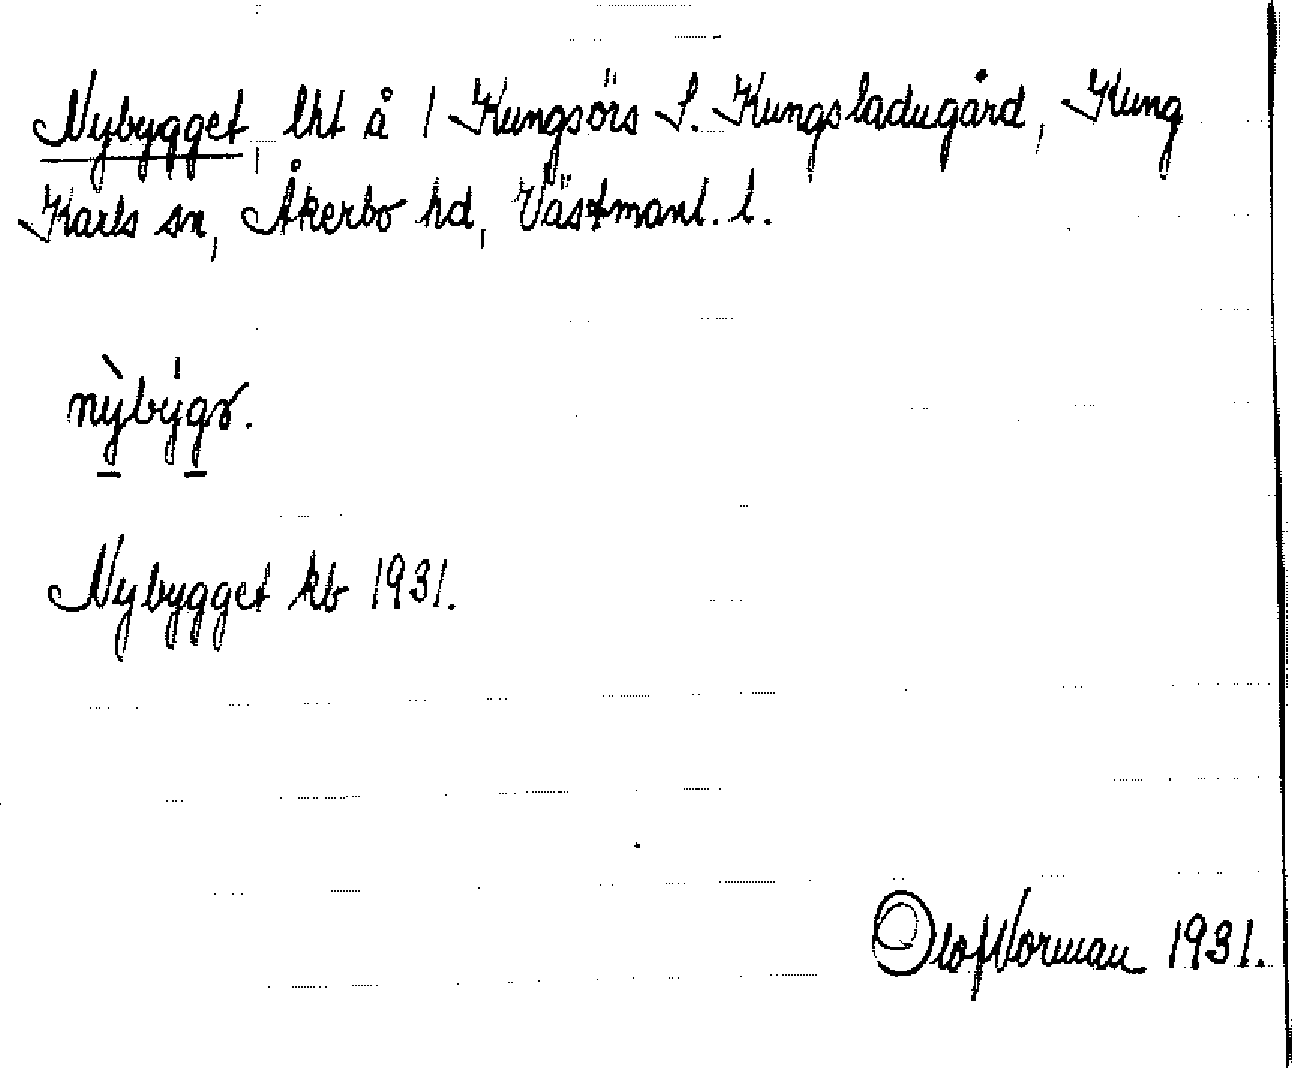 Nybygget, lht å 1 Kungsörs S. Kungsladugård, Kung
Karls sn, Åkerbo hd, Västmanl. l.
Nybygget kb 1931.
Olof Norman 1931.